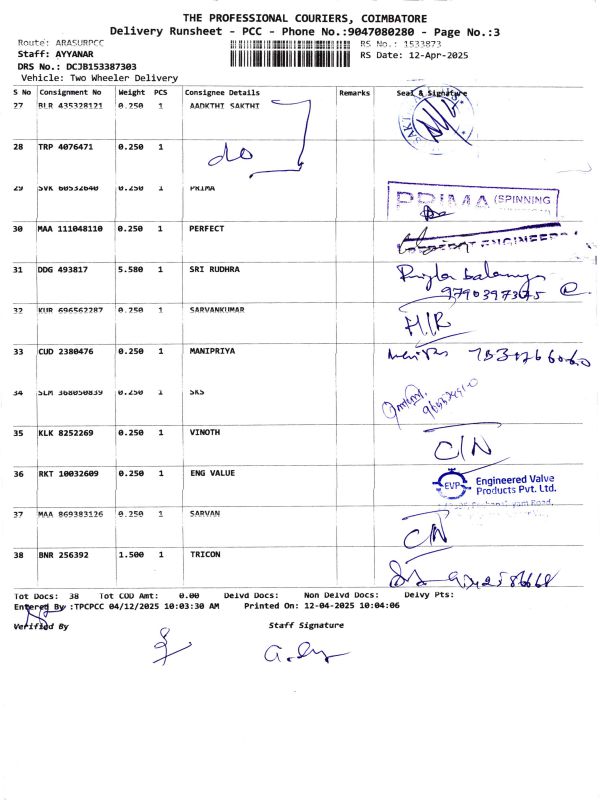 THE PROFESSIONAL COURIERS, COIMBATORE
Delivery Runsheet - PCC - Phone No.:9047080280 - Page No.:3
Route: ARASURPCC RS No.: 1533873
Staff: AYYANAR RS Date: 12-Apr-2025
DRS No.: DCJB153387303
Vehicle: Two Wheeler Delivery
S No Consignment No Weight PCS Consignee Details Remarks Seal & Signature
27 BLR 435328121 0.250 1 AADKTHI SAKTHI
28 TRP 4076471 0.250 1 do
29 SVK 60532640 0.250 1 PRIMA PRIMA (SPINNING
30 MAA 111048110 0.250 1 PERFECT
31 DDG 493817 5.580 1 SRI RUDHRA
9790397375
32 KUR 696562287 0.250 1 SARVANKUMAR H/R
33 CUD 2380476 0.250 1 MANIPRIYA
34 SLM 368050839 0.250 1 SKS
35 KLK 8252269 0.250 1 VINOTH C/N
36 RKT 10032609 0.250 1 ENG VALUE EVP Engineered Valve
Products Pvt. Ltd.
37 MAA 869383126 0.250 1 SARVAN C/N
38 BNR 256392 1.500 1 TRICON
Tot Docs: 38 Tot COD Amt: 0.00 Delvd Docs: Non Delvd Docs: Delvy Pts:
Entered By :TPCPCC 04/12/2025 10:03:30 AM Printed On: 12-04-2025 10:04:06
Verified By Staff Signature